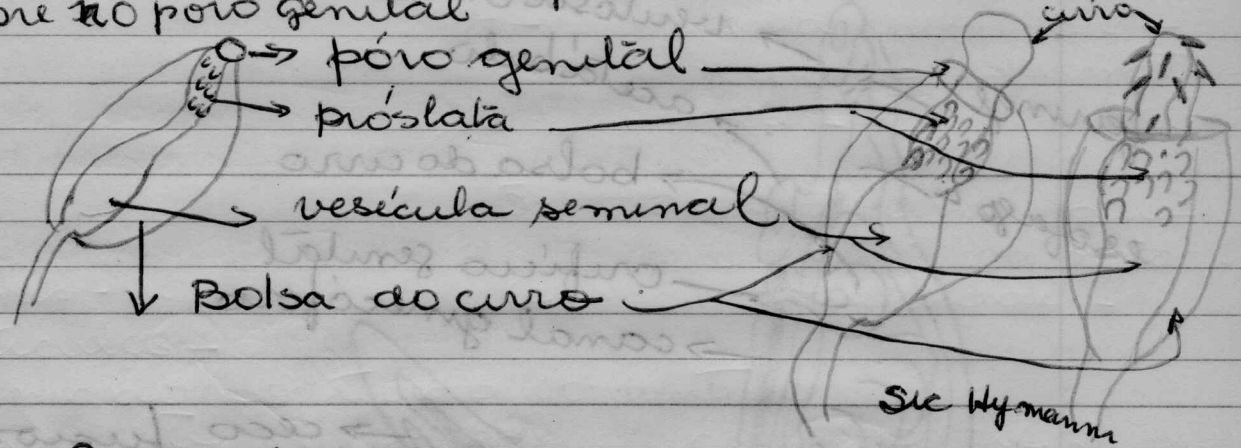 bre no poro genital
cirro
póro genital
próstata
vesícula seminal
Bolsa do cirro
Sic Hymann